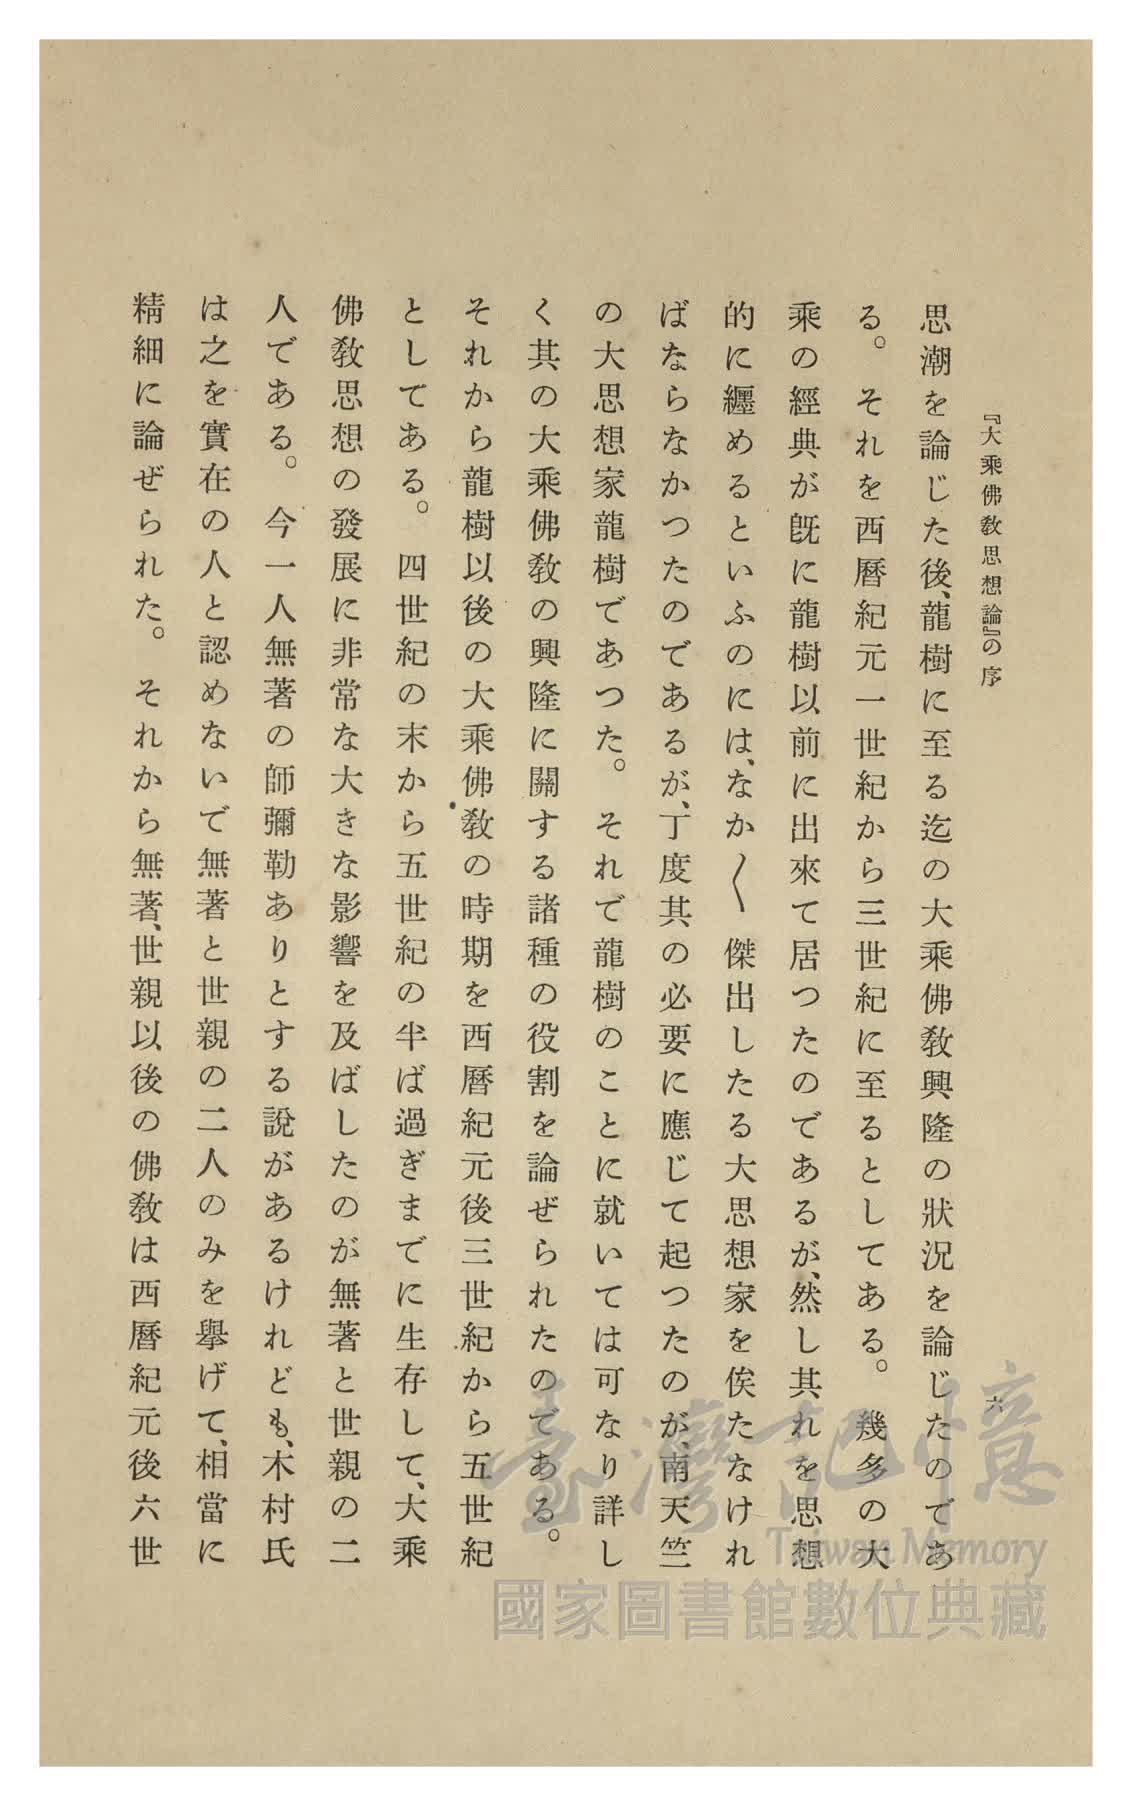 『大乘佛教思想論』の序
六
思潮を論じた後、龍樹に至る迄の大乘佛教興隆の狀況を論じたのであ
る。それを西曆紀元一世紀から三世紀に至るとしてある。幾多の大
乘の經典が旣に龍樹以前に出來て居つたのであるが、然し其れを思想
的に纒めるといふのには、なか〱傑出したる大思想家を俟たなけれ
ばならなかつたのであるが、丁度其の必要に應じて起つたのが、南天竺
の大思想家龍樹であつた。それで龍樹のことに就いては可なり詳し
く其の大乘佛教の興隆に關する諸種の役割を論ぜられたのである。
それから龍樹以後の大乘佛教の時期を西曆紀元後三世紀から五世紀
としてある。四世紀の末から五世紀の半ば過ぎまでに生存して、大乘
佛教思想の發展に非常な大きな影響を及ばしたのが無著と世親の二
人である。今一人無著の師彌勒ありとする說があるけれども、木村氏
は之を實在の人と認めないで無著と世親の二人のみを擧げて、相當に
精細に論ぜられた。それから無著、世親以後の佛教は西曆紀元後六世
臺灣記憶
Taiwan Memory
國家圖書館數位典藏